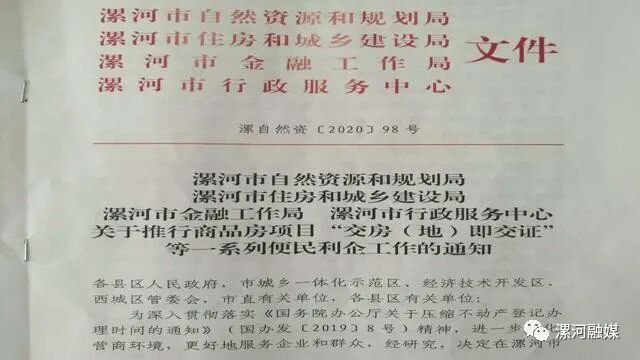 漯河市自然资源和规划局
漯河市住房和城乡建设局
漯河市金融工作局
漯河市行政服务中心
文件
漯自然资〔2020〕98号
漯河市自然资源和规划局
漯河市住房和城乡建设局
漯河市金融工作局 漯河市行政服务中心
关于推行商品房项目“交房（地）即交证”
等一系列便民利企工作的通知
各县区人民政府，市城乡一体化示范区、经济技术开发区、
西城区管委会，市直有关单位，各县区有关单位：
为深入贯彻落实《国务院办公厅关于压缩不动产登记办
理时间的通知》（国办发〔2019〕8号）精神，进一步
营商环境，更好地服务企业和群众，经研究，决定在漯河市
漯河融媒